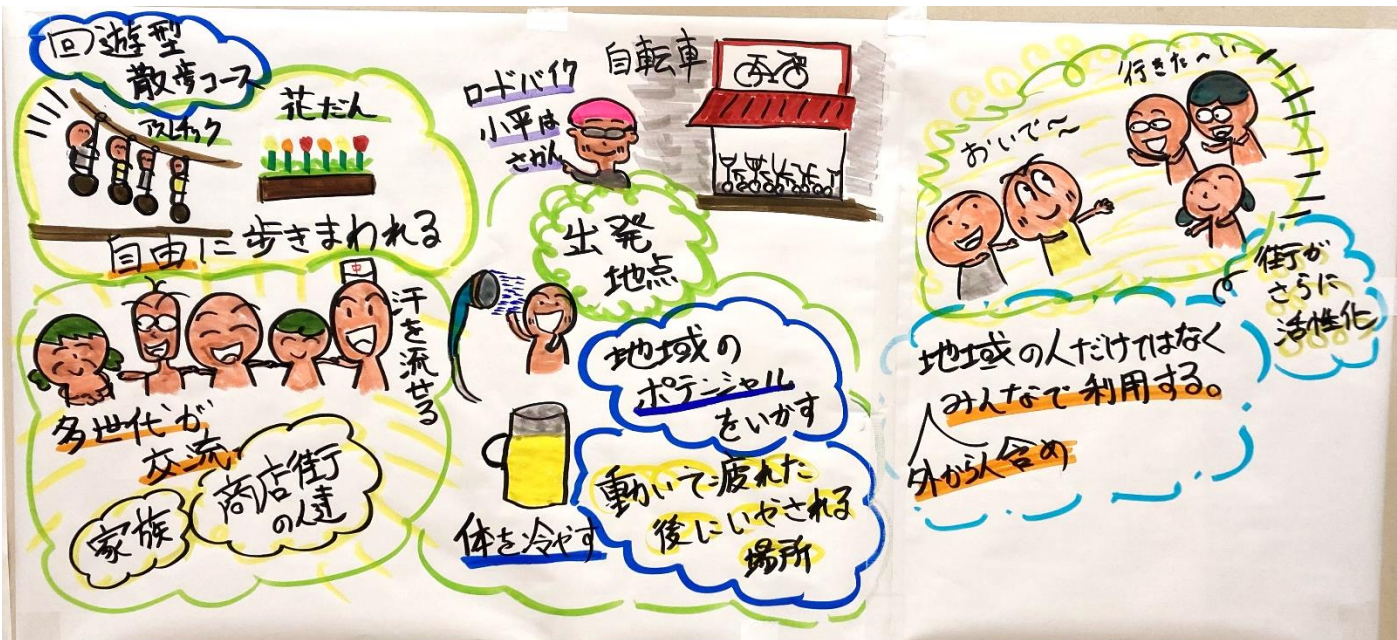 回遊型
散歩コース
アスレチック
花だん
自由に歩きまわれる
中
汗を流せる
多世代が
交流
商店街
の人達
家族
ロードバイク
小平は
さかん
自転車
出発
地点
地域の
ポテンシャル
をいかす
体を冷やす
動いて疲れた
後にいやされる
場所
行きた〜い
おいで〜〜
街が
さらに
活性化
地域の人だけではなく
みんなで利用する。
外から人含め